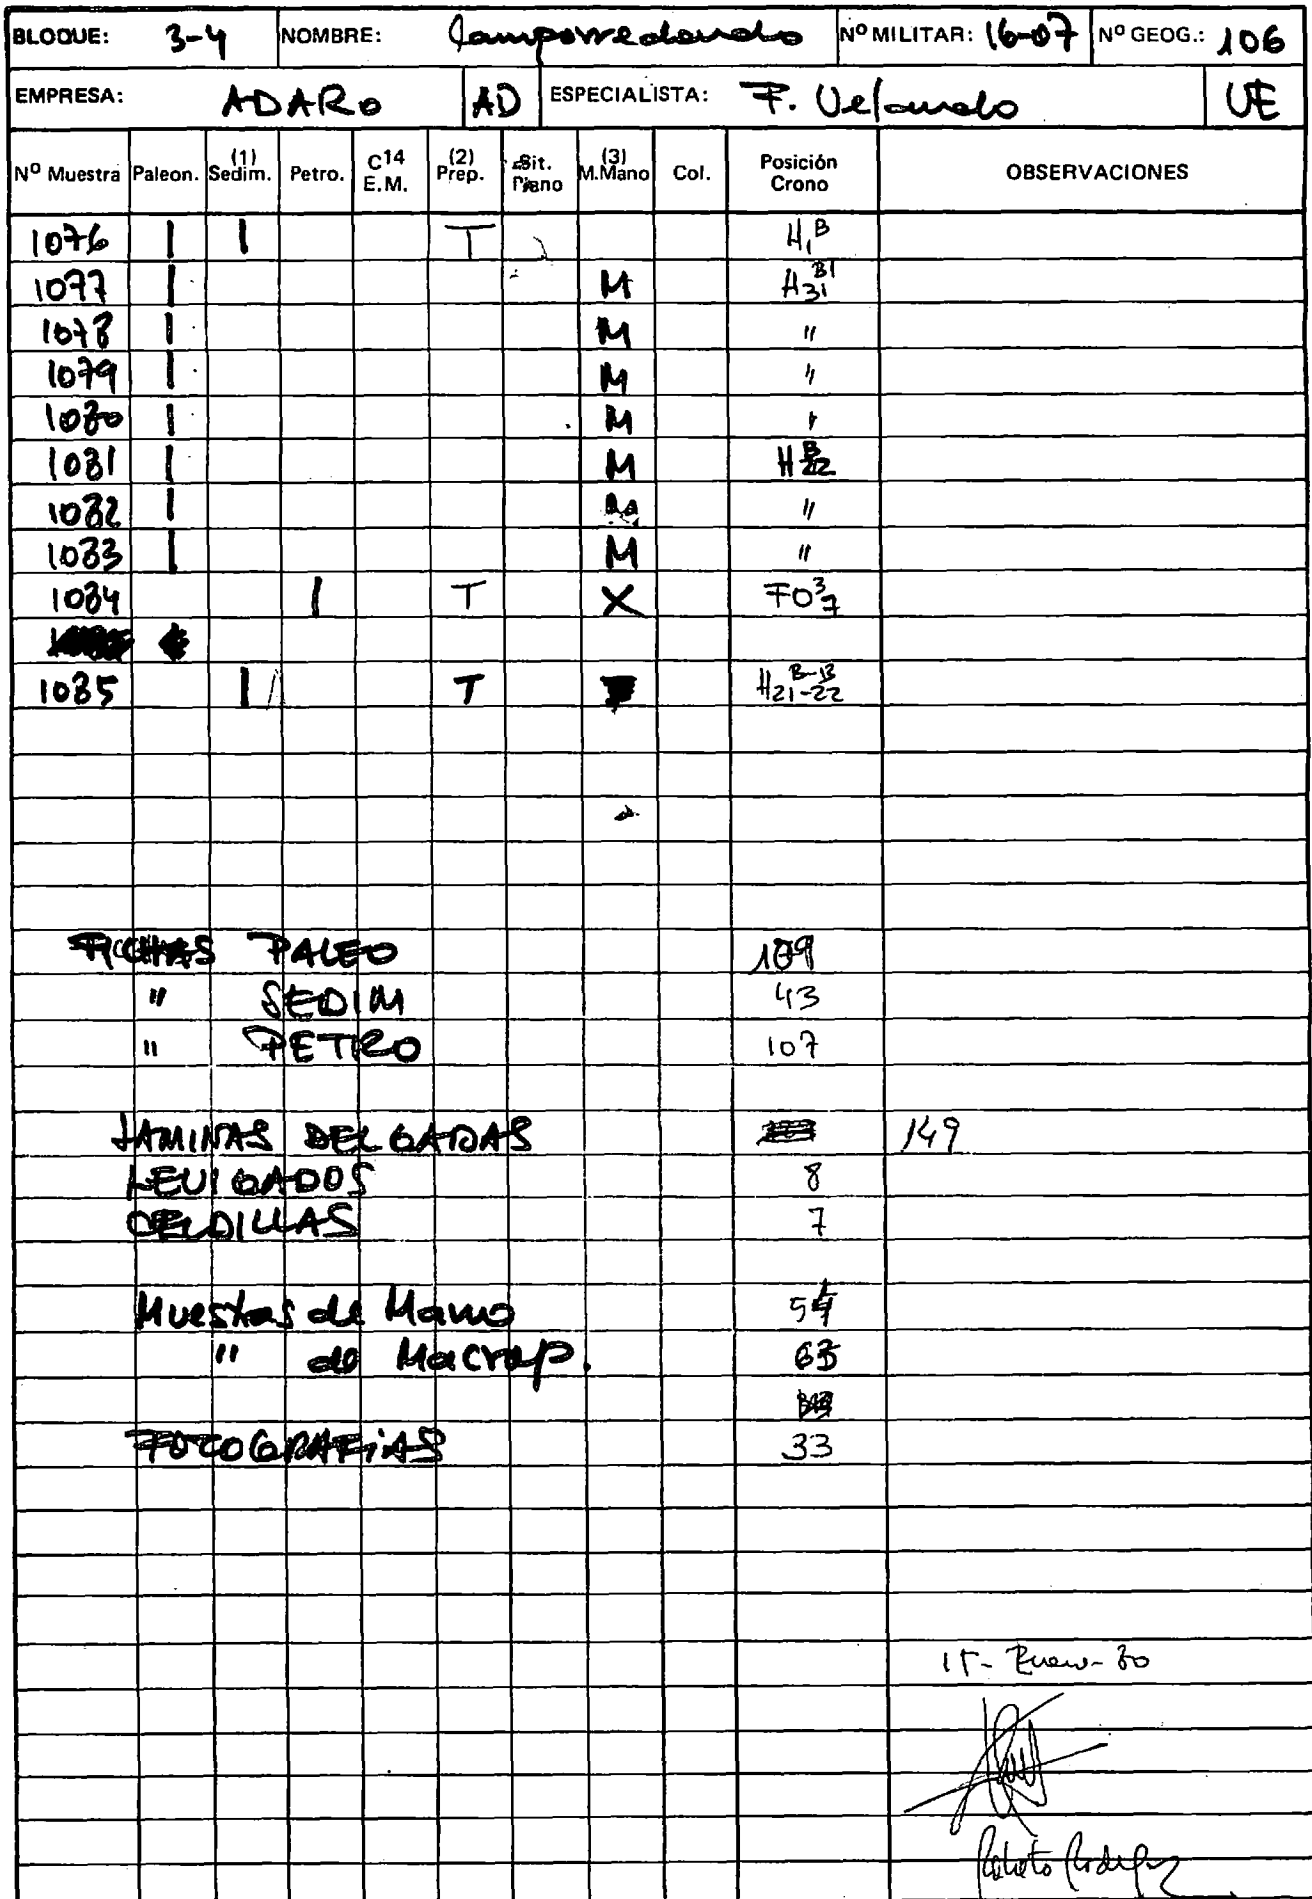 BLOQUE: 3-4 NOMBRE: Camporredondo Nº MILITAR: 16-07 Nº GEOG.: 106
EMPRESA: ADARO AD ESPECIALISTA: F. Velando UE
Nº Muestra Paleon. (1) Sedim. Petro. C14 E.M. (2) Prep. Sit. Plano (3) M.Mano Col. Posición Crono OBSERVACIONES
1076 | | T H1B
1077 | M H31B1
1078 | M "
1079 | M "
1080 | M "
1081 | M H22B
1082 | "
1083 | M "
1084 | T X FO37
1085 | T H21-22B-B
FICHAS PALEO 109
" SEDIM 43
" PETRO 107
LAMINAS DELGADAS 149
LEVIGADOS 8
CELDILLAS 7
Muestras de Mano
" de Macrop. 63
FOTOGRAFIAS 33
15-Enero-80
Roberto Rodriguez